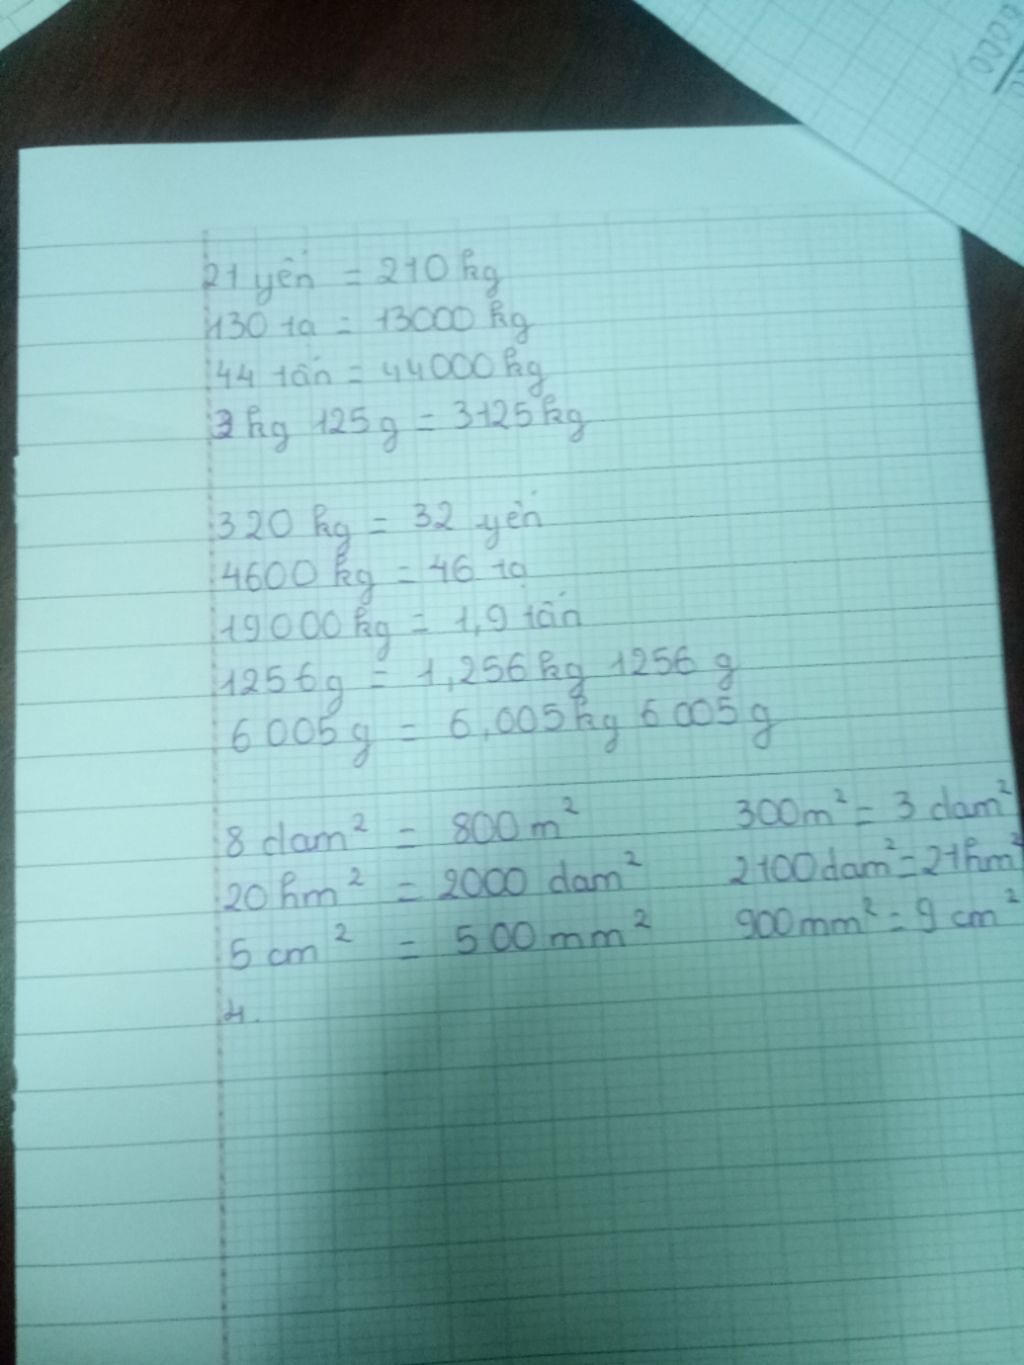 21 yến = 210 kg
130 tạ = 13000 kg
44 tấn = 44000 kg
3 kg 125 g = 3125 kg
320 kg = 32 yến
4600 kg = 46 tạ
19000 kg = 1,9 tấn
1256 g = 1,256 kg 1256 g
6005 g = 6,005 kg 6005 g
8 dam² = 800 m² 300 m² = 3 dam²
20 hm² = 2000 dam² 2100 dam² = 21 hm²
5 cm² = 500 mm² 900 mm² = 9 cm²
4.